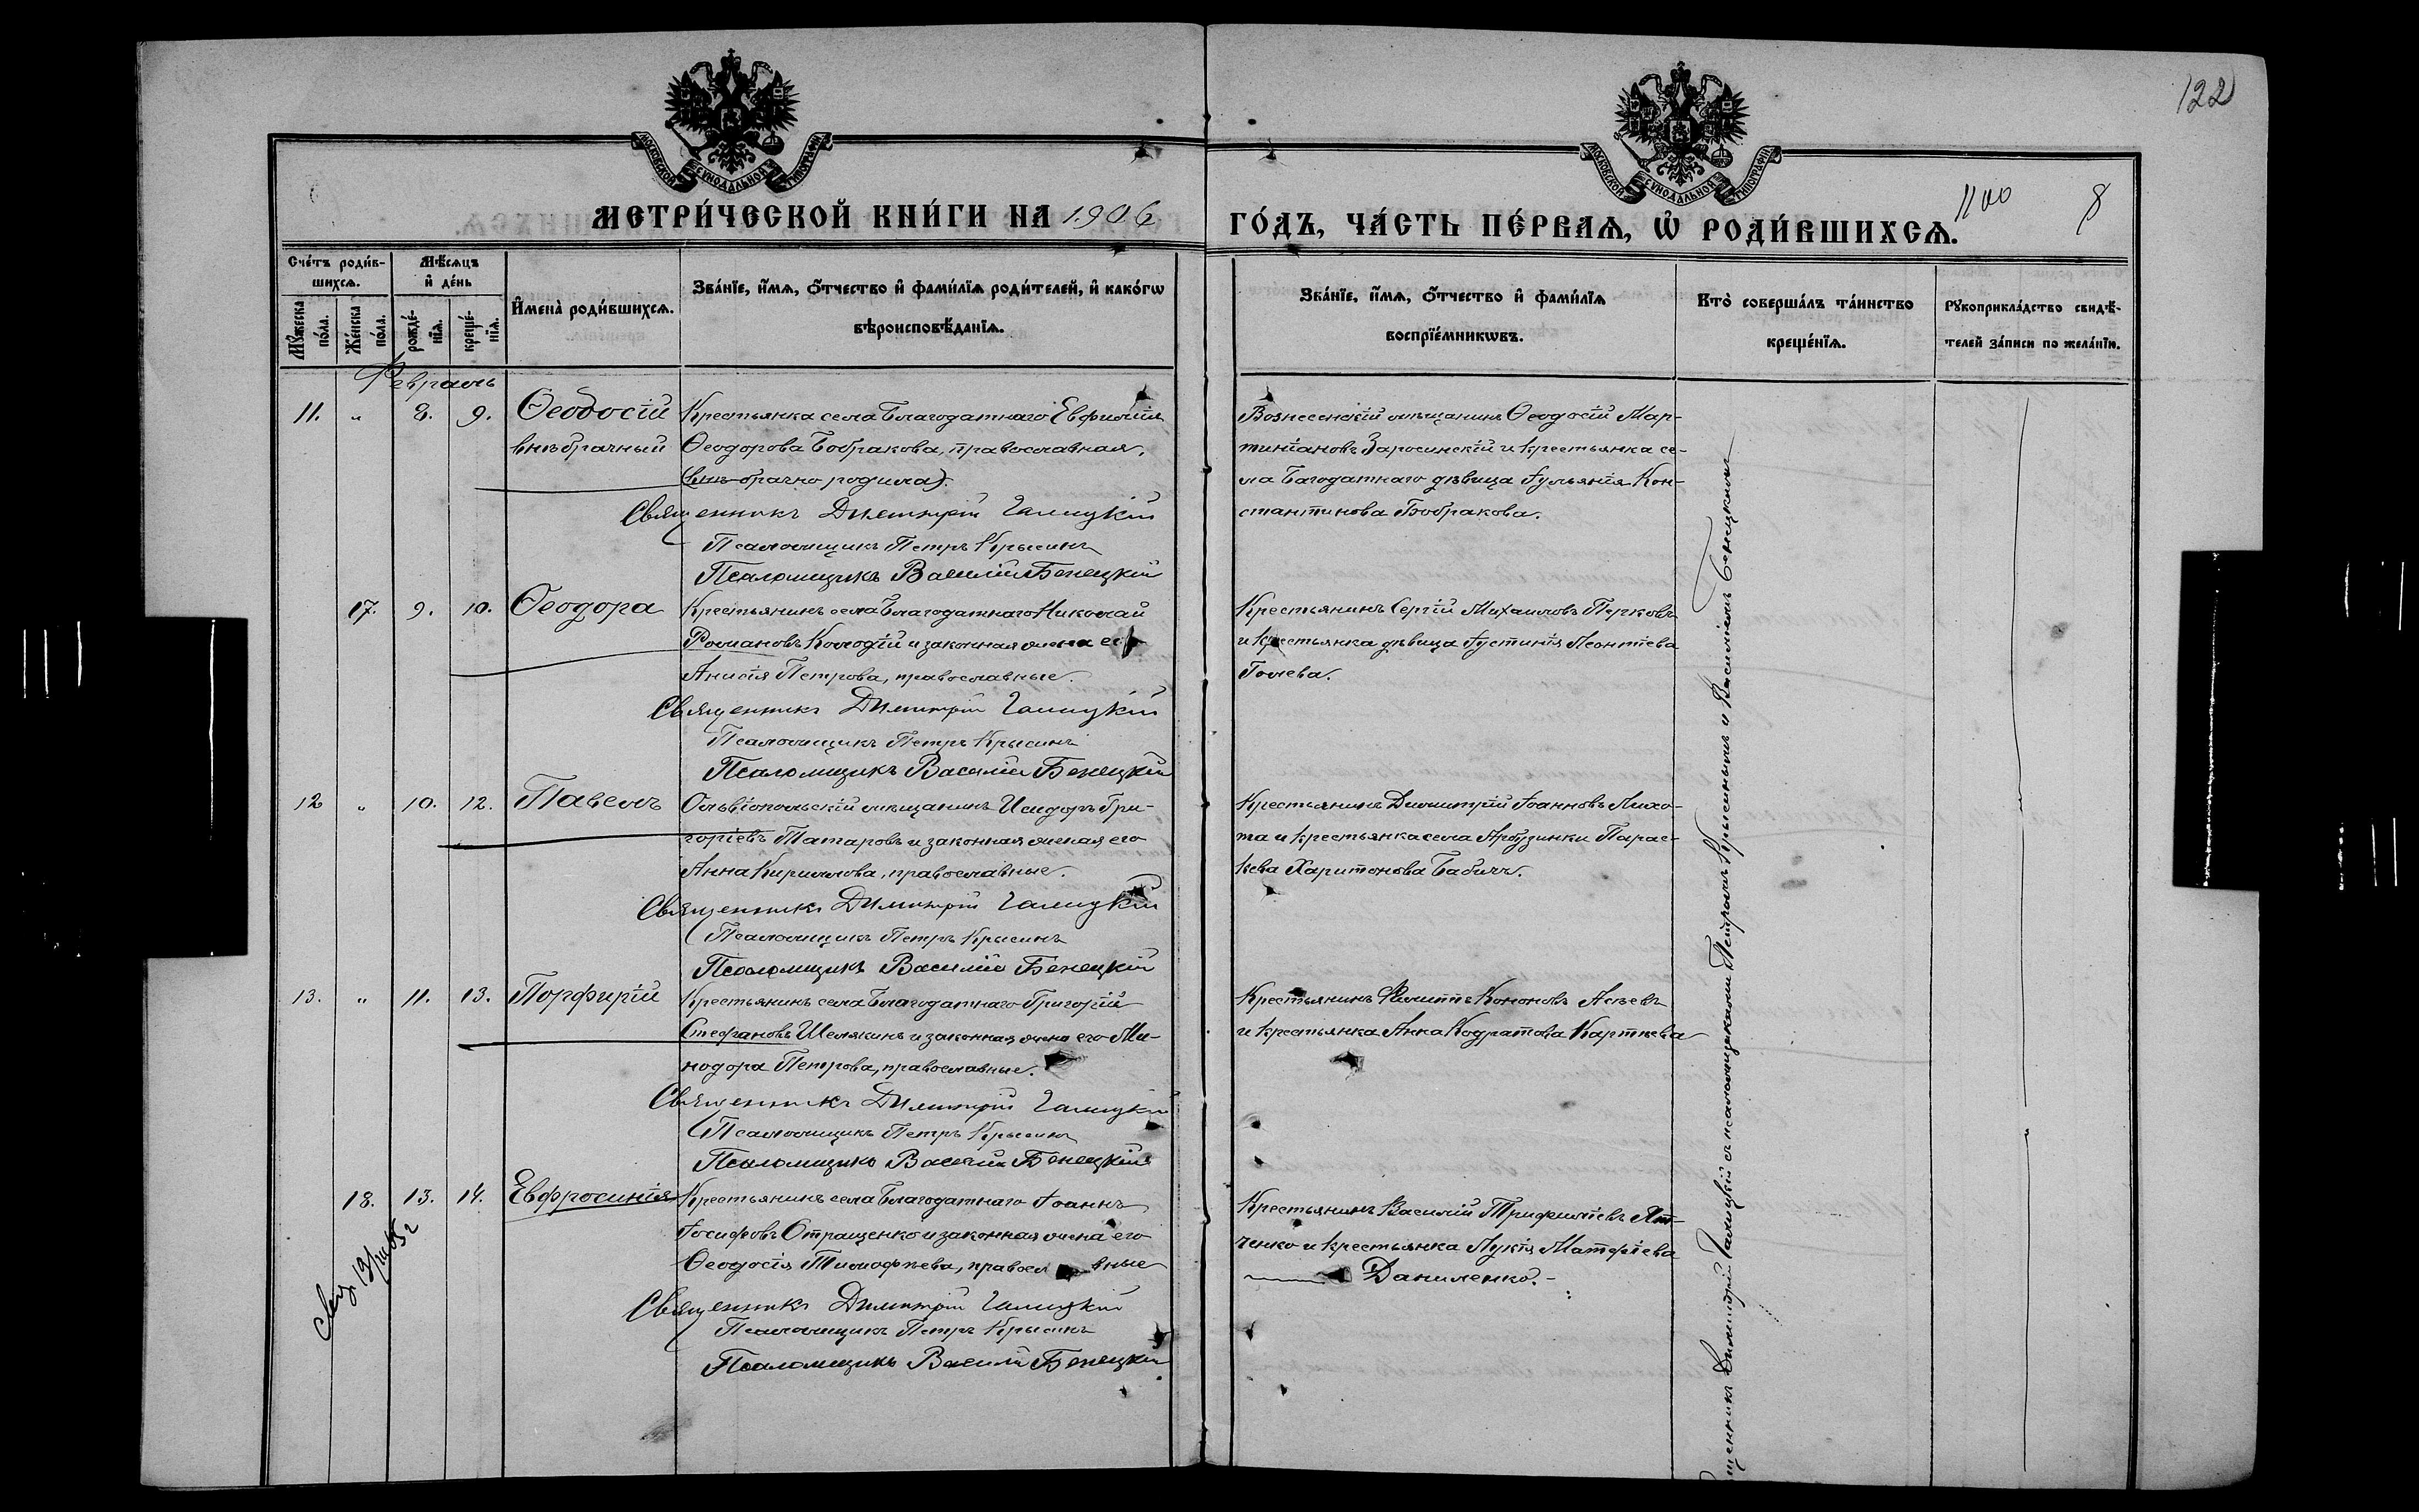 122
1100
8
МОСКОВСКОЙ СѴНОДАЛЬНОЙ ТИПОГРАФІИ
МОСКОВСКОЙ СѴНОДАЛЬНОЙ ТИПОГРАФІИ
МЕТРИ́ЧЕСКОЙ КНИ́ГИ НА 1906
ГО́ДЪ, ЧА́СТЬ ПЕ́РВАѦ, Ѡ҆ РОДИ́ВШИХСѦ.
Сче́тъ роди́в-
шихсѧ.
Мꙋ́жеска по́ла.
Же́нска по́ла.
Мѣ́сѧцъ
и҆ де́нь
рожде́-нїѧ.
креще́-нїѧ.
И҆мена̀ роди́вшихсѧ.
Зва́нїе, и҆́мѧ, ѻ҆́тчество и҆ фами́лїѧ роди́телей, и҆ како́гѡ
вѣроисповѣ́данїѧ.
Зва́нїе, и҆́мѧ, ѻ҆́тчество и҆ фами́лїѧ
воспрїе́мникѡвъ.
Кто̀ соверша́лъ та́инство
креще́нїѧ.
Рꙋкоприкла́дство свидѣ́-
телей за́писи по жела́нїю.
Февраль
11. " 8. 9. Ѳеодосій Крестьянка села Благодатнаго Евфимія
внѣбрачный Ѳеодорова Бобракова, православная.
(внѣ-брачно родила).
Священникъ Димитрій Галицкій
Псаломщикъ Петръ Крысинъ
Псаломщикъ Василій Бенецкій
Вознесенскій мѣщанинъ Ѳеодосій Мар-
тиніановъ Заросинскій и крестьянка се-
ла Багодатнаго дѣвица Іуліанія Кон-
стантинова Бобракова.
17. 9. 10. Ѳеодора Крестьянинъ села Благодатнаго Николай
Романовъ Колодій и законная жена его
Анисія Петрова, православные.
Священникъ Димитрій Галицкій
Псаломщикъ Петръ Крысинъ
Псаломщикъ Василій Бенецкій
Крестьянинъ Сергій Михаиловъ Перковъ
и крестьянка дѣвица Іустинія Леонтіева
Голева.
12 " 10. 12. Павелъ Ольвіопольскій мѣщанинъ Исидоръ Гри-
горіевъ Татаровъ и законная жена его
Анна Кириллова, православные.
Священникъ Димитрій Галицкій
Псаломщикъ Петръ Крысинъ
Псаломщикъ Василій Бенецкій
Крестьянинъ Димитрій Іоанновъ Лихо-
та и крестьянка села Арбузинки Парас-
кева Харитонова Бабичъ.
13. " 11. 13. Порфирій Крестьянинъ села Благодатнаго Григорій
Стефановъ Шелякинъ и законная жена его Ми-
нодора Петрова, православные.
Священникъ Димитрій Галицкій
Псаломщикъ Петръ Крысинъ
Псаломщикъ Василій Бенецкій
Крестьянинъ Филиппъ Кононовъ
и крестьянка Анна Кодратова Картѣева
18. 13. 14. Евфросинія Крестьянинъ села Благодатнаго Іоаннъ
Іосифовъ Отращенко и законная жена его
Ѳеодосія Тимофѣева, православные
Священникъ Димитрій Галицкій
Псаломщикъ Петръ Крысинъ
Псаломщикъ Василій Бенецкій
Крестьянинъ Василій Трифиліевъ Ят-
ченко и крестьянка Лукія Матфіева
Даниленко.
Священникъ Димитрій Галицкій съ псаломщиками Петромъ Крысинымъ и Василіемъ Бенецкимъ